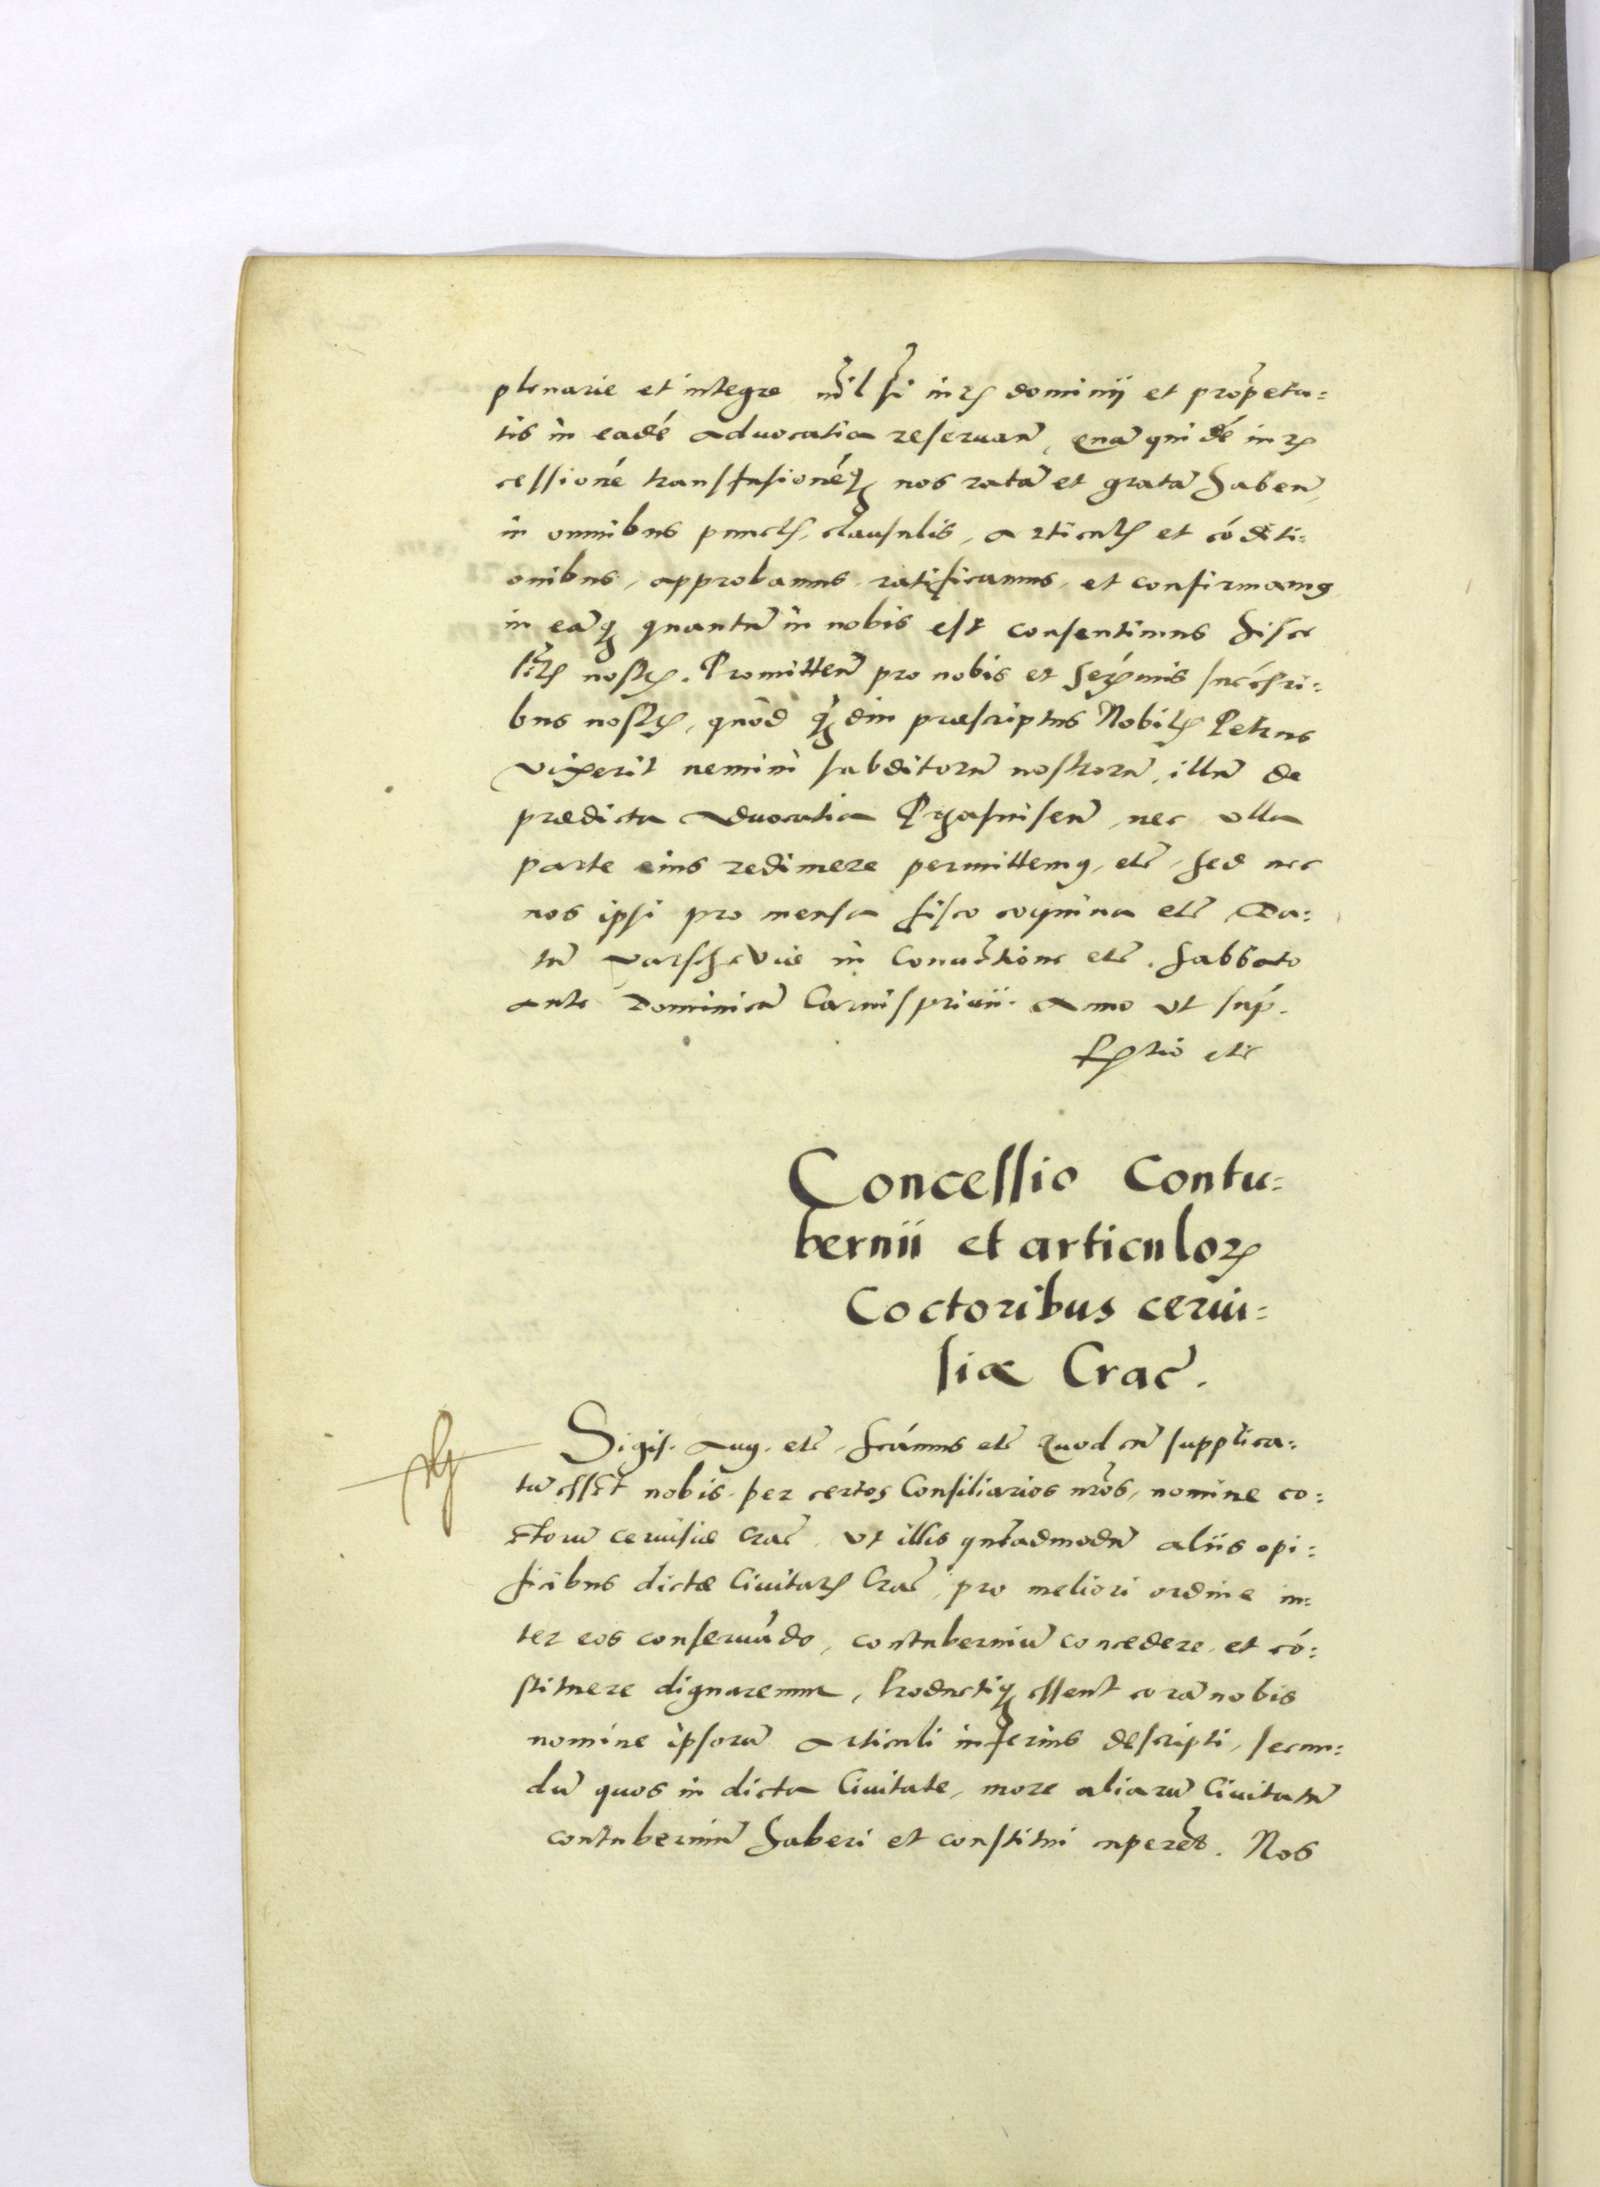 plenarie et integre nĩl sĩ iur̃ dominij et prop̃eta=
tis in eadẽ aduocatia reseruan̄, Quã quidẽ iur̃
cessionẽ transfusionẽq̃ nos ratã et gratã haben̄,
in omnibus punctꝭ, clausulis, articulꝭ et cõditi=
onibus, approbamus, ratificamus, et confirmamꝰ
in eãq̃ quantũ in nobis est consentimus hisce
lr̃is nostrꝭ. Promitten̄ pro nobis et Serẽmis succẽsri=
bus nostrꝭ, quod q̃diu præscriptus Nobilꝭ Petrus
vixerit nemini subditorũ nostrorũ, illũ de
prædicta aduocatia Przasnisen̄, nec vlla
parte eius redimere permittemꝰ, etc̃, sed nec
nos ipsi pro mensa fisco coquina etc̃ Da=
tũ Varscheviæ in Conuẽtione etc̃. Sabbato
ante Dominicã Carnispriuii. Anno vt sup̃.
Rꝭtio etc̃
Concessio Contu=
bernii et articuloꝝ
Coctoribus cerui=
siæ Crac̃.
Sigis. Aug. etc̃. sc̃ãmus etc̃ Quod cũ supplica=
tũ esset nobis per certos Consiliarios nr̃os, nomine co=
ctorũ ceruisiæ Crac̃, vt illis quẽadmodũ aliis opi=
ficibus dictæ Ciuitatꝭ Crac̃, pro meliori ordine in=
ter eos conseruãdo, contuberniũ concedere et cõ=
stituere dignaremur, Productiq̃ essent corã nobis
nomine ipsorũ articuli inferius descripti, secun=
dũ quos in dicta Ciuitate, more aliarũ Ciuitatũ
contuberniũ haberi et constitui cuperẽt. Nos